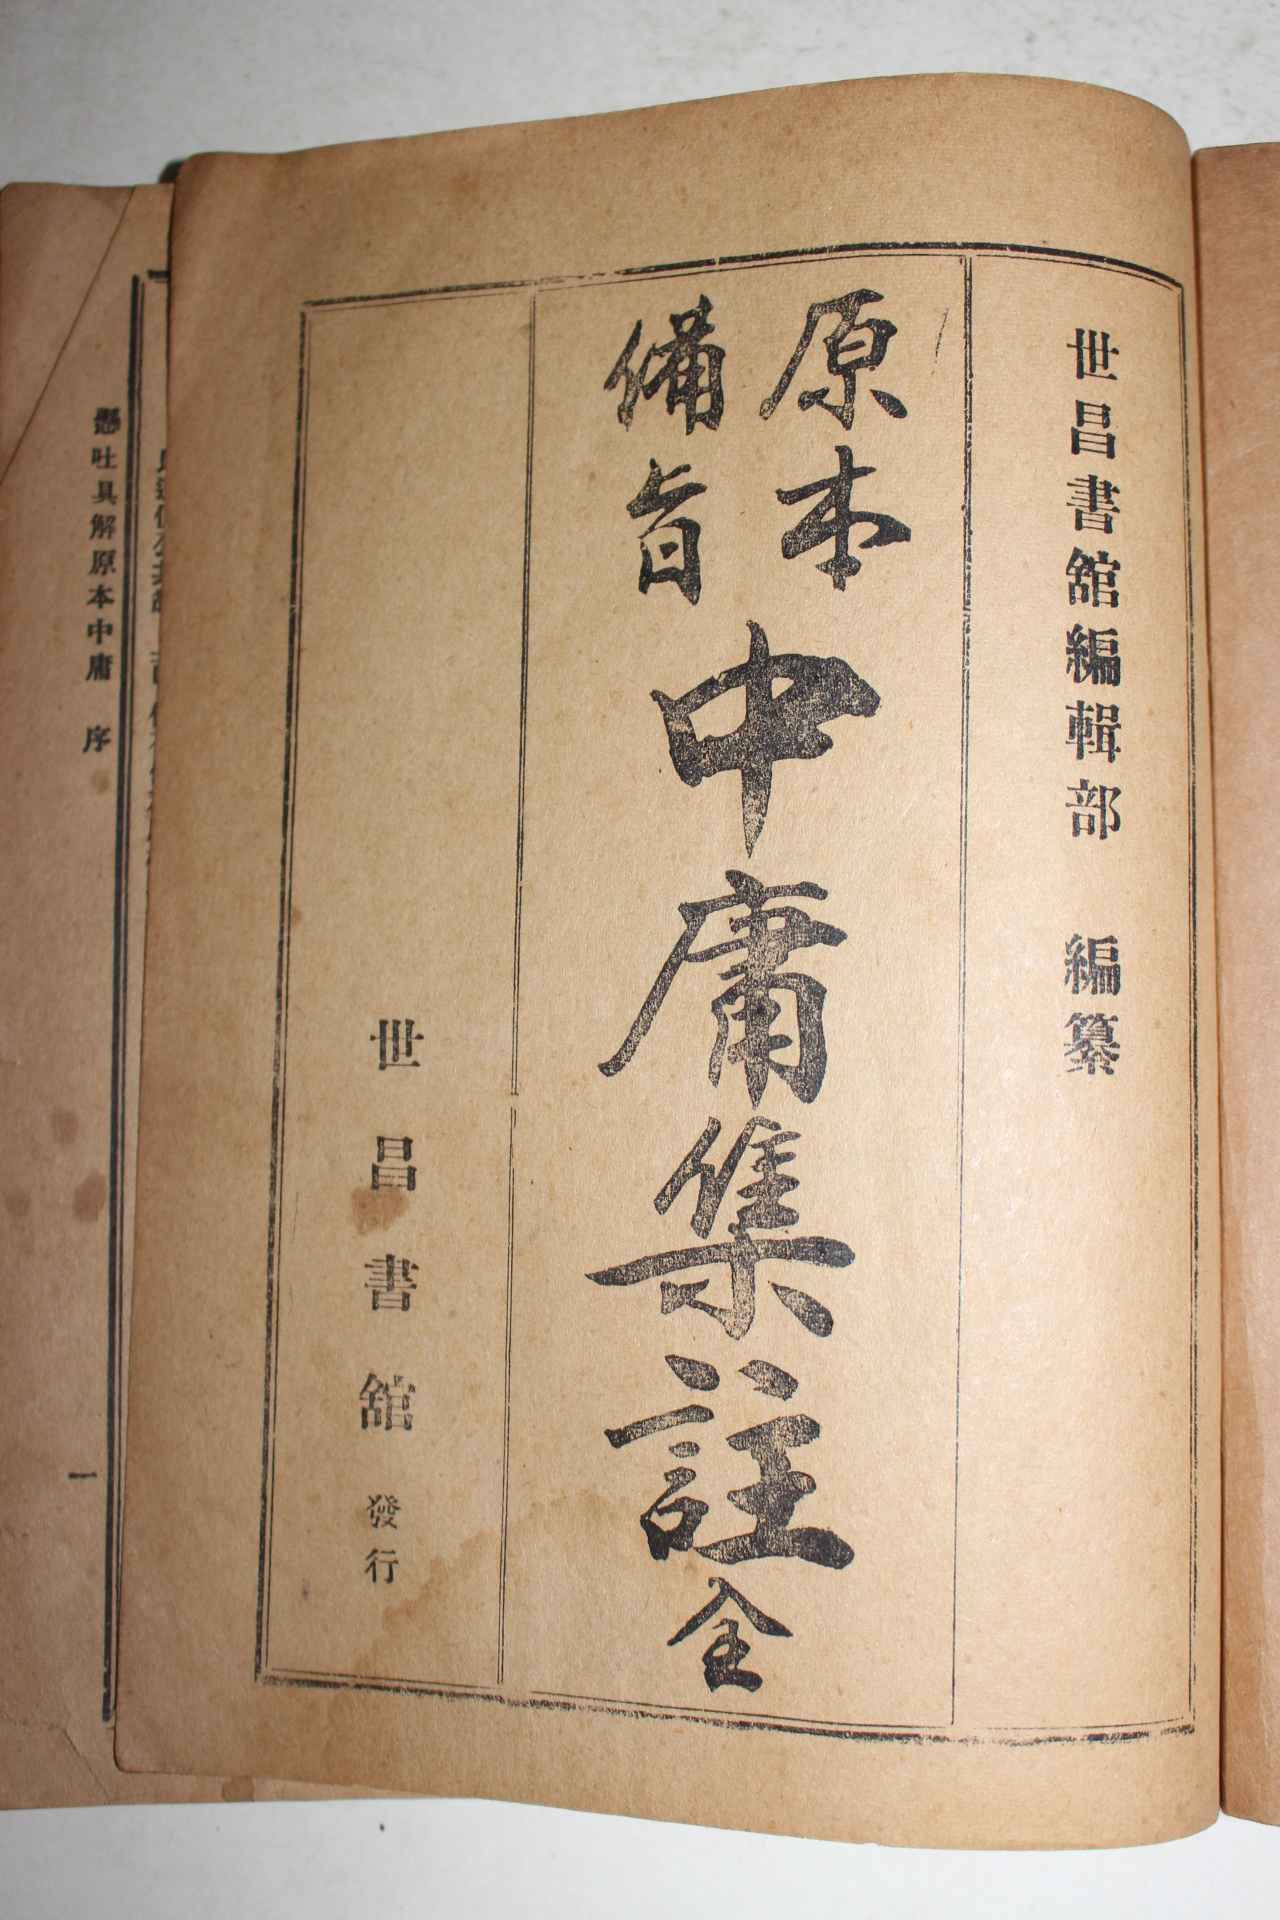 世昌書館編輯部 編纂
原本
備旨
中庸集註全
世昌書館 發行
懸吐具解原本中庸 序 一